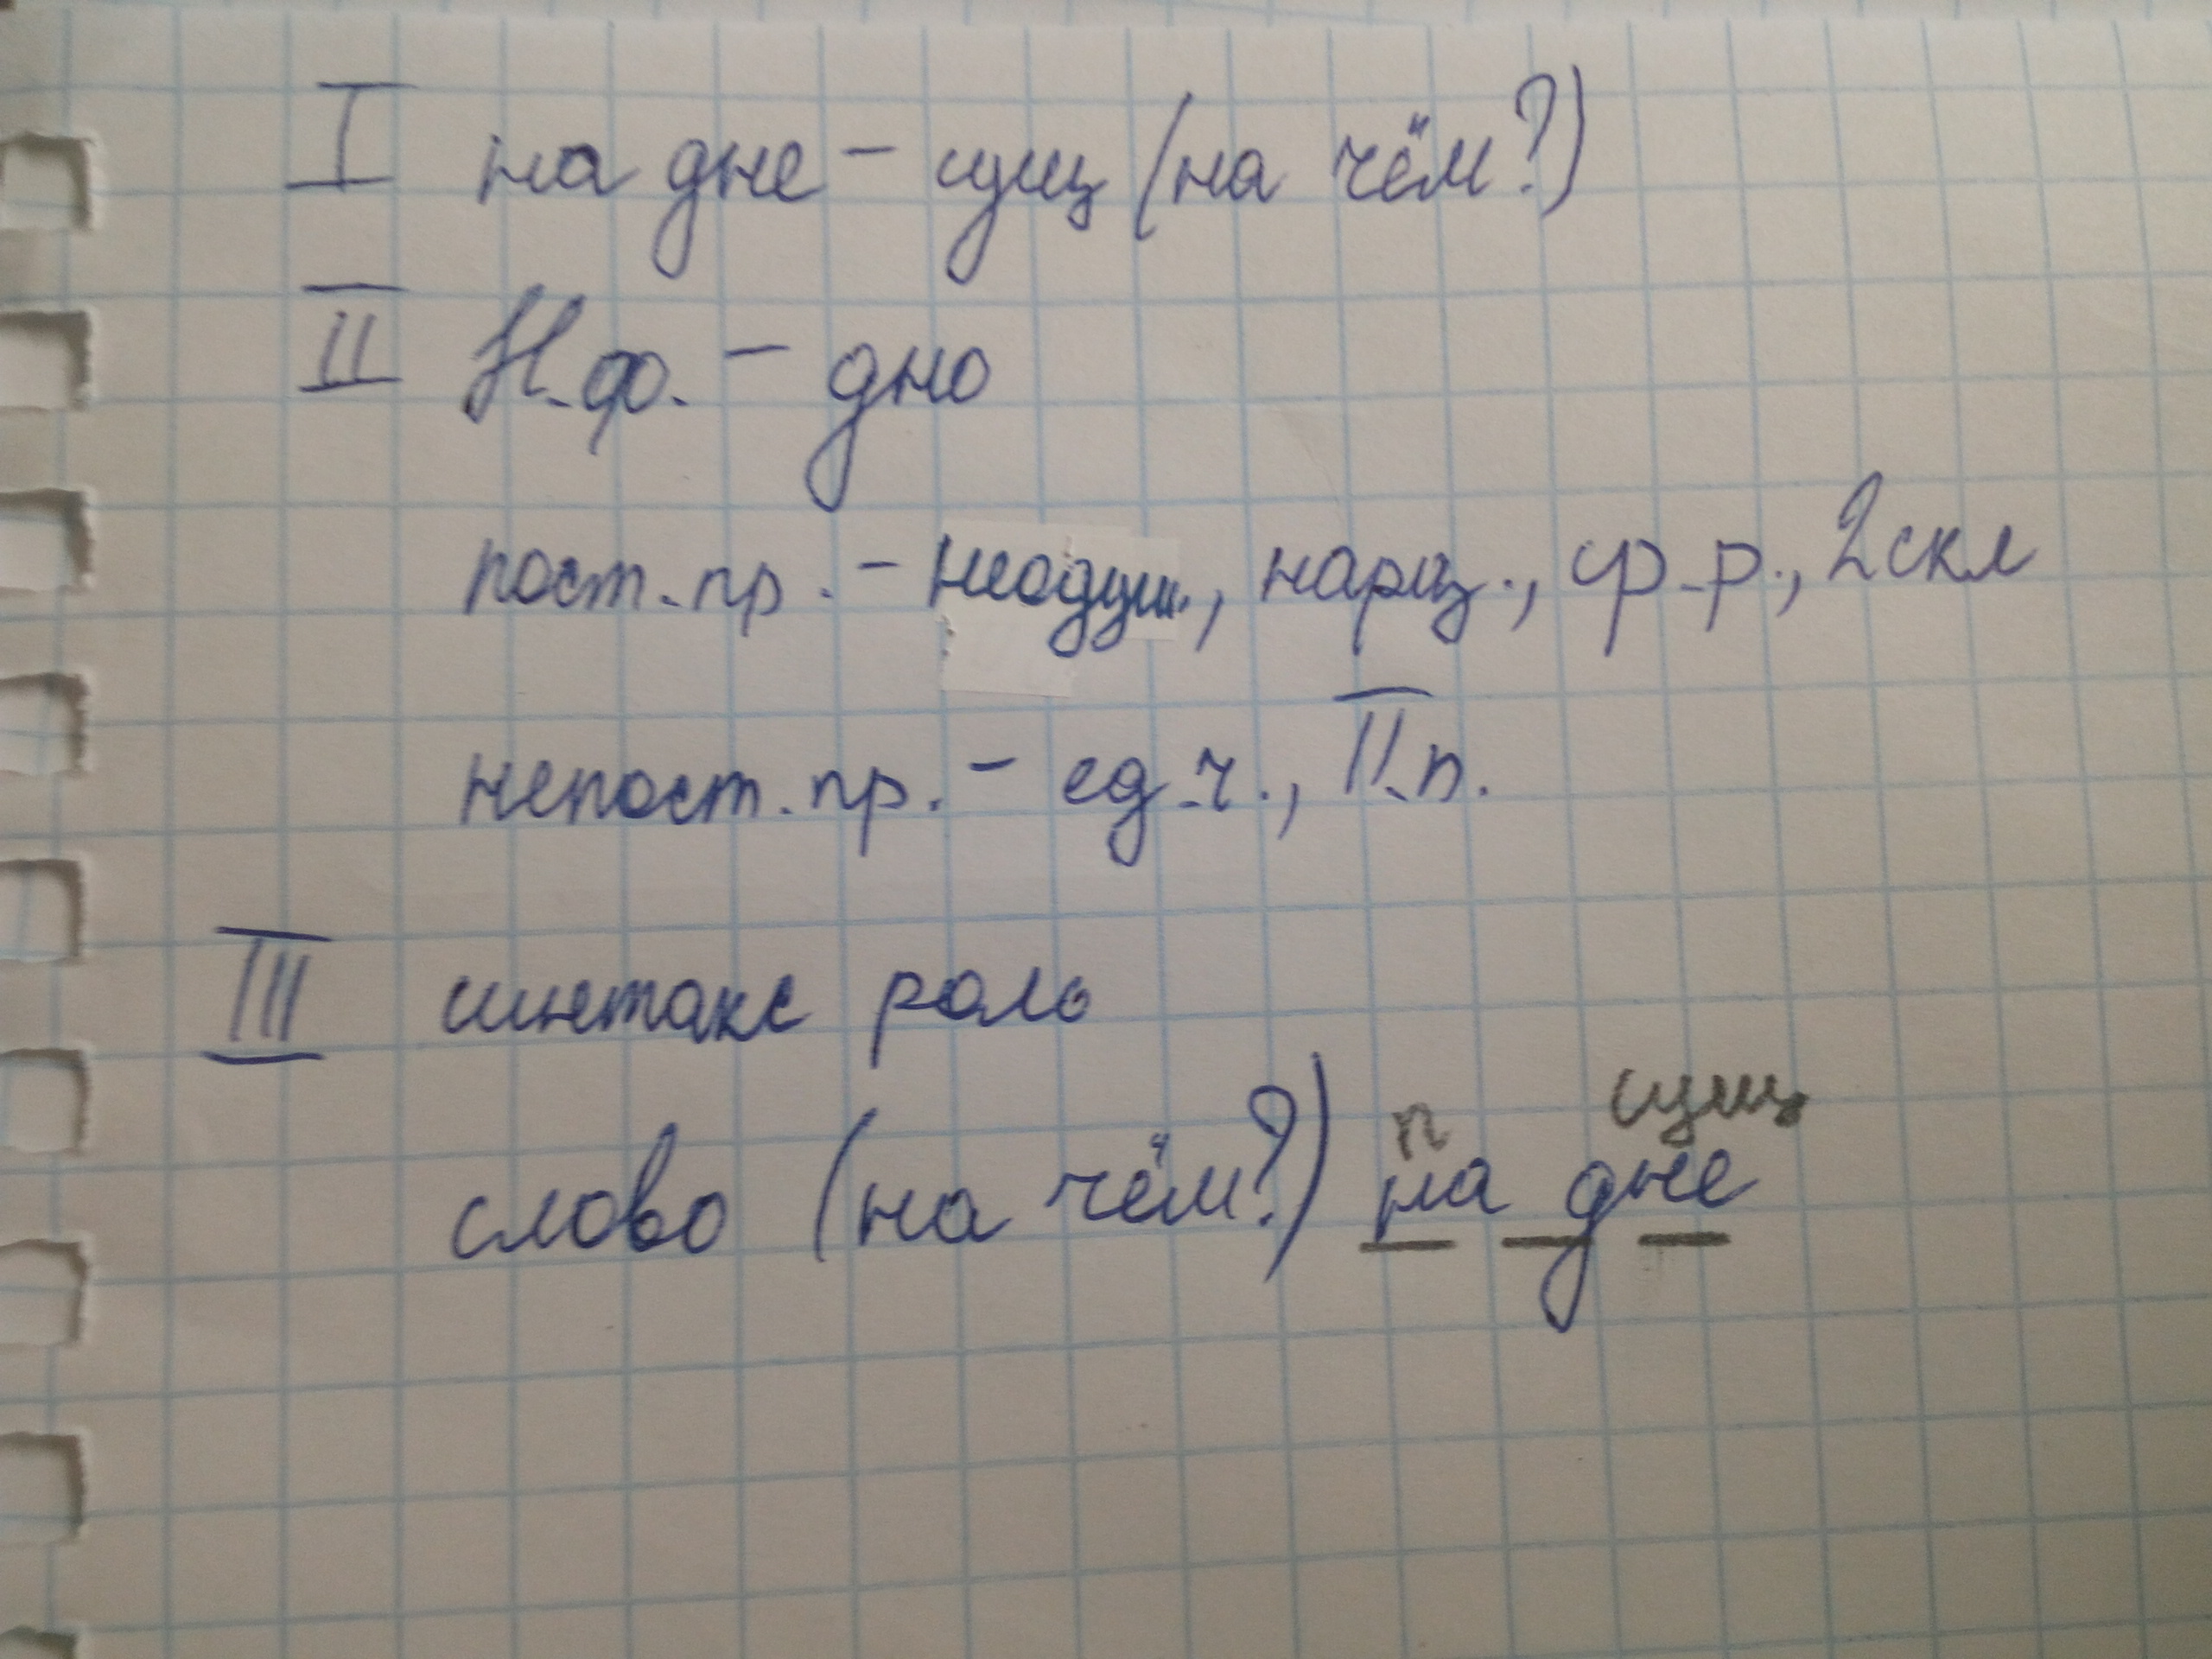 I на дне – сущ (на чём?)
II Н.ф. – дно
пост.пр. – неодуш., нариц., ср.р., 2скл
непост.пр. – ед.ч., П.п.
III синтакс роль
п сущ
слово (на чём?) на дне